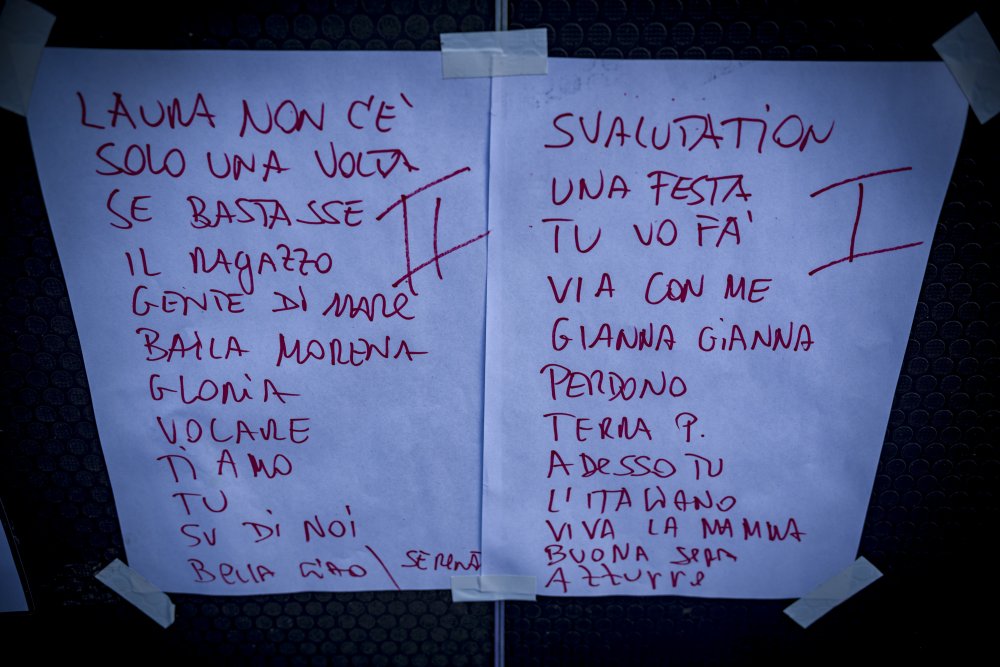 LAURA NON C'E'
SOLO UNA VOLTA
SE BASTASSE
IL RAGAZZO
GENTE DI MARE
BAILA MORENA
GLORIA
VOLARE
TI AMO
TU
SU DI NOI
BELLA CIAO \ SERENATA
II
SVALUTATION
UNA FESTA
TU VO FA'
VIA CON ME
GIANNA GIANNA
PERDONO
TERRA P.
ADESSO TU
L'ITALIANO
VIVA LA MAMMA
BUONA SERA
AZZURRE
I